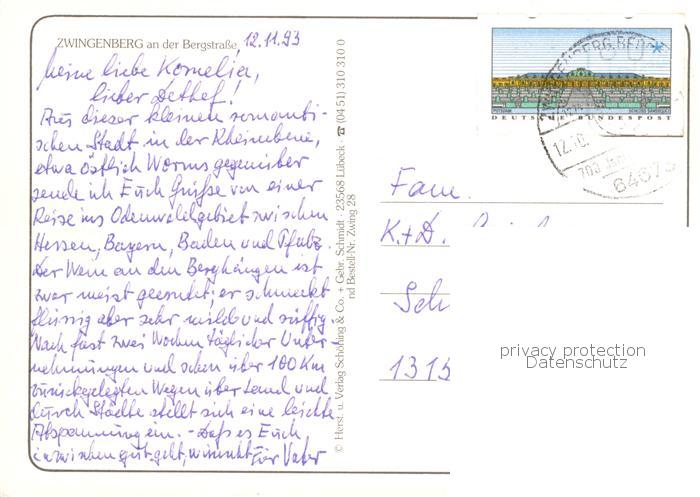 ZWINGENBERG an der Bergstraße, 12.11.93
Meine liebe Kornelia,
lieber Dethef!
Aus dieser kleinen romanti-
schen Stadt in der Rheinebene,
etwa östlich Worms gegenüber
sende ich Euch Grüsse von einer
Reise ins Odenwaldgebiet zwischen
Hessen, Bayern, Baden und Pfalz.
Der Wein an den Berghängen ist
zwar meist geerntet; er schmeckt
flüssig aber sehr milde und süffig.
Nach fast zwei Wochen täglicher Unter-
nehmungen und schon über 100 Km
zurückgelegten Wegen über Land und
durch Städte stellt sich eine leichte
Abspannung ein. - Daß es Euch
inzwischen gut geht, wünscht Euer Vater
© Herst. u. Verlag Schöning & Co. + Gebr. Schmidt · 23568 Lübeck · ☎ (04 51) 310 310 0
nd Bestell-Nr. Zwing 28
DEUTSCHE BUNDESPOST
ZWINGENBERG, BERGSTR
12.10.
700 Jahre
64673
Fam.
K.+D.
Sch
1315
privacy protection
Datenschutz